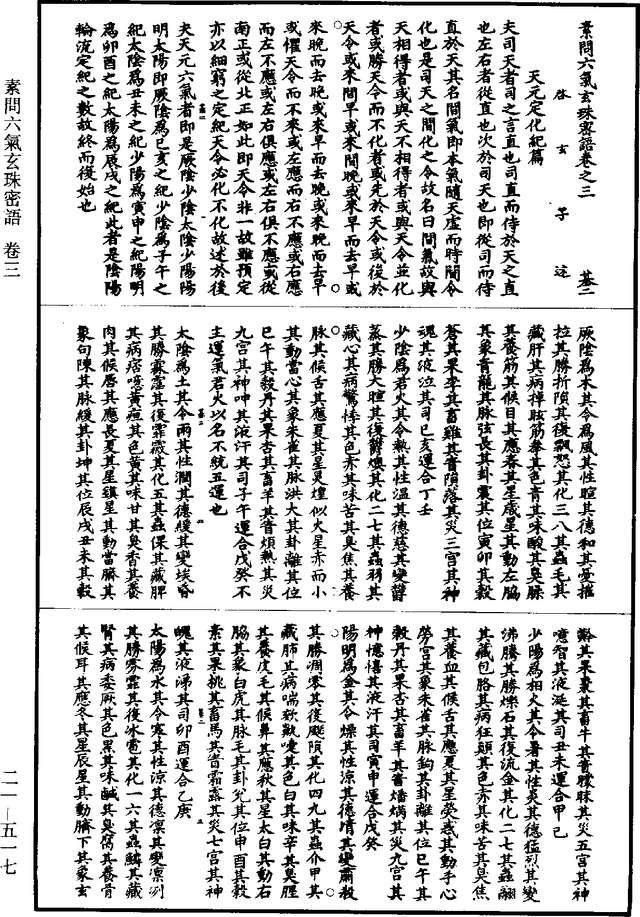 素問六氣玄珠密語卷之三 基二
啓玄子述
天元定化紀篇
夫司天者司之言直也司直而侍於天之直
也左右者從直也次於司天也即從司而侍
直於天其名間氣即本氣隨天虛而時間令
化也是司天之間化之令故名曰間氣故與
天相得者或與天不相得者或與天令並化
者或勝天令而不化者或先於天令或後於
天令或來間早或來間晚或來早而去早或
來晚而去晚或來早而去晚或來晚而去早
或懼天令而不來或左應而右不應或右應
而左不應或左右俱應或左右俱不應或從
南正或從北正如此即天令非一故雖預定
亦以細窮之定紀天令必化不化故述於後
夫天元六氣者即是厥陰少陰太陰少陽陽
明太陽即厥陰爲巳亥之紀少陰爲子午之
紀太陰爲丑未之紀少陽爲寅申之紀陽明
爲卯酉之紀太陽爲辰戌之紀此者是陰陽
輪流定紀之數故終而復始也
厥陰爲木其令爲風其性暄其德和其變摧
拉其勝折隕其復飄怒其化三八其蟲毛其
藏肝其病掉眩筋攣其色青其味酸其臭臊
其養筋其候目其應春其星歲星其動左脇
其象青龍其脉弦長其卦震其位寅卯其穀
蒼其果李其畜雞其眚隕落其災三宮其神
魂其液泣其司巳亥運合丁壬
少陰爲君火其令熱其性溫其德慈其變鬱
蒸其勝大暄其復鬱燠其化二七其蟲羽其
藏心其病驚悸其色赤其味苦其臭焦其養
脉其候舌其應夏其星煌煌似火星赤而小
其動當心其象朱雀其脉洪大其卦離其位
巳午其穀丹其果杏其畜羊其眚煩熱其災
九宮其神呻其液汗其司子午運合戊癸不
主運氣君火以名不統五運也
太陰爲土其令雨其性潤其德緩其變埃昏
其勝霖霪其復霏霰其化五其蟲倮其藏脾
其病痞噫黃疸其色黃其味甘其臭香其養
肉其候唇其應長夏其星鎮星其動當臍其
象句陳其脉緩其卦坤其位辰戌丑未其穀
齡其果棗其畜牛其眚朦昧其災五宮其神
噫智其液涎其司丑未運合甲己
少陽爲相火其令暑其性炎其德猛烈其變
沸騰其勝爍石其復流金其化二七其蟲翮
其藏包胳其病狂顛其色赤其味苦其臭焦
其養血其候舌其應夏其星熒惑其動手心
勞宮其象朱雀其脉鉤其卦離其位巳午其
穀丹其果杏其畜羊其眚燔焫其災九宮其
神憶懎其液汗其司寅申運合戊癸
陽明爲金其令燥其性涼其德清其變肅殺
其勝凋零其復飋隕其化四九其蟲介甲其
藏肺其病喘欬䶎嚏其色白其味辛其臭腥
其養皮毛其候鼻其應秋其星太白其動右
脇其象白虎其脉毛其卦兌其位申酉其穀
素其果桃其畜馬其眚霜露其災七宮其神
魄其液涕其司卯酉運合乙庚
太陽爲水其令寒其性涼其德凛其變凛冽
其勝雰霏其復冰雹其化一六其蟲鱗其藏
腎其病委厥其色黑其味鹹其臭腐其養骨
其候耳其應冬其星辰星其動臍下其象玄
素問六氣玄珠密語 卷三
二一—五一七